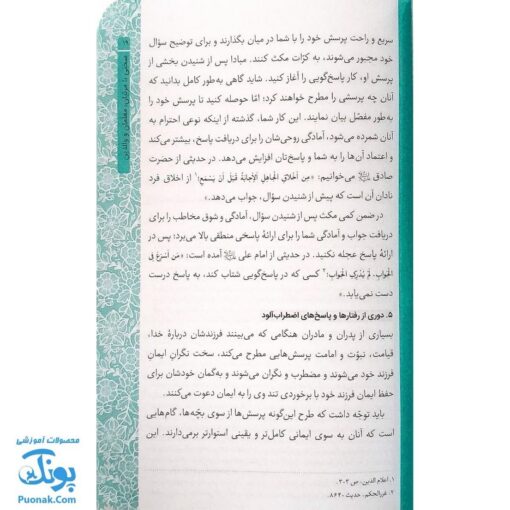 سخنی با مربّیان، معلّمان و والدین
سریع و راحت پرسش خود را با شما در میان بگذارند و برای توضیح سؤال
خود مجبور می‌شوند، به کرّات مکث کنند. مبادا پس از شنیدن بخشی از
پرسش او، کار پاسخ‌گویی را آغاز کنید. شاید گاهی به‌طور کامل بدانید که
آنان چه پرسشی را مطرح خواهند کرد؛ امّا حوصله کنید تا پرسش خود را
به‌طور مفصّل بیان نمایند. این کار شما، گذشته از اینکه نوعی احترام به
آنان شمرده می‌شود، آمادگی روحی‌شان را برای دریافت پاسخ، بیشتر می‌کند
و اعتماد آن‌ها را به شما و پاسخ‌تان افزایش می‌دهد. در حدیثی از حضرت
صادق می‌خوانیم: «مِن اَخلاقِ الجاهِلِ الاِجابَةُ قَبلَ اَن یَسمَعَ؛۱ از اخلاق فرد
نادان آن است که پیش از شنیدن سؤال، جواب می‌دهد.»
در ضمن کمی مکث پس از شنیدن سؤال، آمادگی و شوق مخاطب را برای
دریافت جواب و آمادگی شما را برای ارائهٔ پاسخی منطقی بالا می‌برد؛ پس در
ارائهٔ پاسخ عجله نکنید. در حدیثی از امام علی آمده است: «مَن اَسرَعَ فِی
الجَوابِ، لَم یُدرِکِ الجَوابَ؛۲ کسی که در پاسخ‌گویی شتاب کند، به پاسخ درست
دست نمی‌یابد.»
۵. دوری از رفتارها و پاسخ‌های اضطراب‌آلود
بسیاری از پدران و مادران هنگامی که می‌بینند فرزندشان دربارهٔ خدا،
قیامت، نبوّت و امامت پرسش‌هایی مطرح می‌کند، سخت نگرانِ ایمانِ
فرزند خود می‌شوند و مضطرب و نگران می‌شوند و به‌گمان خودشان برای
حفظ ایمان فرزند خود با برخوردی تند وی را به ایمان دعوت می‌کنند.
باید توجّه داشت که طرح این‌گونه پرسش‌ها از سوی بچّه‌ها، گام‌هایی
است که آنان به سوی ایمانی کامل‌تر و یقینی استوارتر برمی‌دارند. این
۱. اعلام الدین، ص ۳۰۳.
۲. غررالحکم، حدیث ۸۶۴۰.
محصولات آموزشی
پونک
Puonak.Com